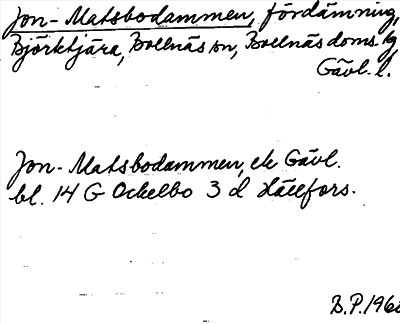 Jon-Matsbodammen, fördämning,
Björktjära, Bollnäs sn, Bollnäs doms-lg,
Gävl. l.
Jon-Matsbodammen, ek Gävl.
bl. 14 G Ockelbo 3 d Hällfors.
B.P. 196